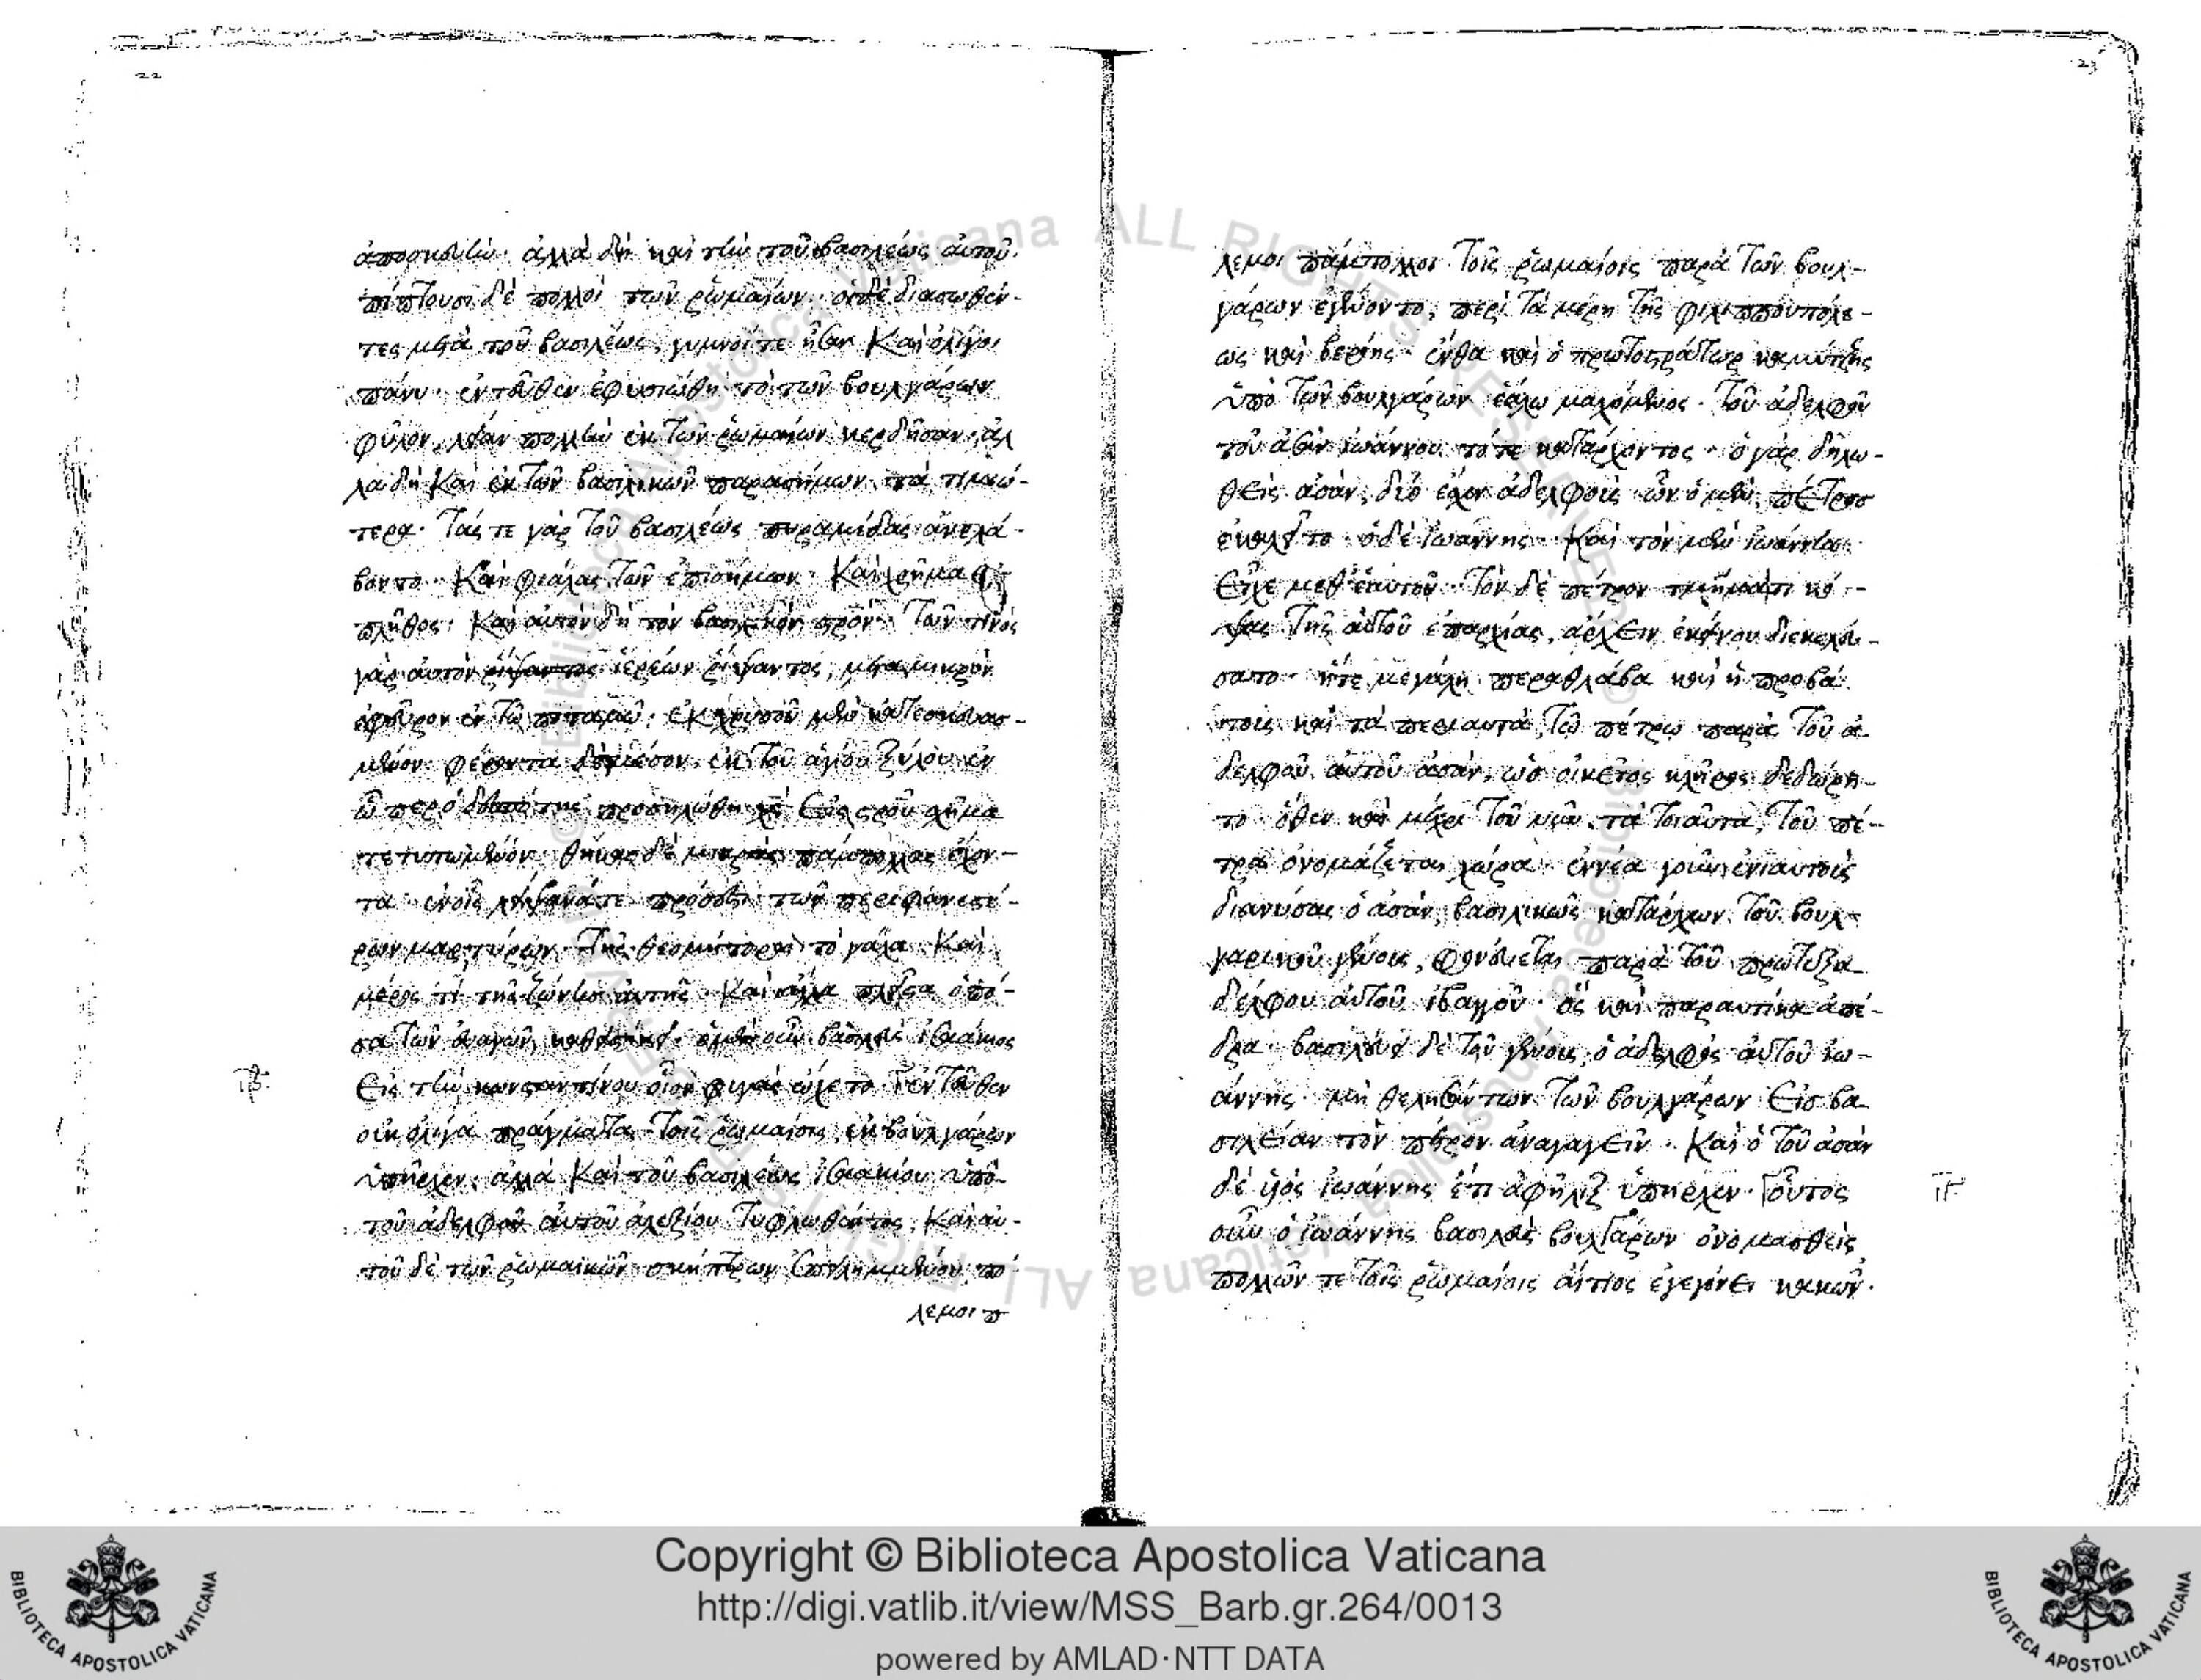 22
ἀποσκευὴν· ἀλλὰ δὴ καὶ τὴν τοῦ βασιλέως αὐτοῦ.
πίπτουσι δὲ πολλοὶ τῶν ῥωμαίων· οἱ δὲ διασωθέν-
τες μετὰ τοῦ βασιλέως, γυμνοί τε ἦσαν καὶ ὀλίγοι
πάνυ· ἐντεῦθεν ἐφυσιώθη τὸ τῶν βουλγάρων
φῦλον, λείαν πολλὴν ἐκ τῶν ῥωμαίων κερδῆσαν, ἀλ
λὰ δὴ καὶ ἐκ τῶν βασιλικῶν παρασήμων τὰ τιμιώ-
τερα· τάς τε γὰρ τοῦ βασιλέως πυραμίδας ἀνελά-
βοντο· καὶ φιάλας τῶν ἐπισήμων· καὶ χρῆμα
πλῆθος· καὶ αὐτὸν δὴ τὸν βασιλικὸν σρὸν· τῶν τινὸς
γὰρ αὐτὸν ῥίψαντος ἱερέων ῥίψαντος, μετὰ μικρὸν
ἐφεῦρον ἐν τῷ ποταμῷ· ἐκ χρυσοῦ μὲν κατεσκευασ-
μένον φέροντα μέσον, ἐκ τοῦ ἁγίου ξύλου ἐν
ᾧπερ ὁ δεσπότης προσηλώθη χς εἰς σροῦ σχῆμα
τετυπωμένον· θήκας δὲ μικρὰς παμπόλλας ἔχον-
τα· ἐν οἷς λείψανά τε τῶν περιφανεστέ-
ρων μαρτύρων· τῆς θεομήτορος τὸ γάλα· καὶ
μέρος τὶ τῆς ζώνης αὐτῆς· καὶ ἄλλα πλεῖστα ὁπό-
σα τῶν ὁ μὲν οὖν βασιλεὺς ἰσαάκιος
ιβ
εἰς τὴν κωνσταντίνου οἷον φυγὰς ᾤχετο· ἐντεῦθεν
οὐκ ὀλίγα πράγματα τοῖς ῥωμαίοις ἐκ βουλγάρων
ὑπῆρχεν, ἀλλὰ καὶ τοῦ βασιλέως ἰσαακίου ὑπὸ
τοῦ ἀδελφοῦ αὐτοῦ ἀλεξίου τυφλωθέντος, καὶ αὐ-
τοῦ δὲ τῶν ῥωμαϊκῶν σκήπτρων ἐπειλημμένου πό
λεμοι π
23
λεμοι πάμπολλοι τοῖς ῥωμαίοις παρὰ τῶν βουλ-
γάρων ἐγένοντο, περὶ τὰ μέρη τῆς φιλιππουπόλε-
ως καὶ βερόης· ἔνθα καὶ ὁ πρωτοστράτωρ καμύτζης
ὑπὸ τῶν βουλγάρων ἑάλω μαχόμενος· τοῦ ἀδελφοῦ
τοῦ ἀσὰν ἰωάννου τότε κατάρχοντος· ὁ γὰρ δηλω-
θεὶς ἀσὰν, δύο ἔχων ἀδελφοὺς ὧν ὁ μὲν πέτρος
ἐκαλεῖτο ὁ δὲ ἰωάννης· καὶ τὸν μὲν ἰωάννην
εἶχε μεθ' ἑαυτοῦ· τὸν δὲ πέτρον τμήματι κό-
ψας τῆς αὐτοῦ ἐπαρχίας, ἄρχειν ἐκείνου διεκελεύ-
σατο· ἥ τε μεγάλη περσθλάβα καὶ ἡ προβά
τους καὶ τὰ περι αυτὰ, τῷ πέτρῳ παρὰ τοῦ ἀ
δελφοῦ αὐτοῦ ἀσὰν, ὡς οἰκεῖος κλῆρος δεδώρη-
το· ὅθεν καὶ μέχρι τοῦ νῦν τὰ τοιαῦτα, τοῦ πέ-
τρου ὀνομάζεται χώρα· ἐννέα γοῦν ἐνιαυτοὺς
διανύσας ὁ ἀσὰν, βασιλικῶς κατάρχων τοῦ βουλ-
γαρικοῦ γένους, φονεύεται παρὰ τοῦ πρωτεξα
δέλφου αὐτοῦ ἰβαγκοῦ· ὃς καὶ παραυτίκα ἀπέ-
δρα· βασιλεύει δὲ τοῦ γένους, ὁ ἀδελφὸς αὐτοῦ ἰω-
άννης· μὴ θελησάντων τῶν βουλγάρων εἰς βα
σιλείαν τὸν πέτρον ἀναγαγεῖν· καὶ ὁ τοῦ ἀσὰν
δὲ υἱὸς ἰωάννης ἔτι ἀφῆλιξ ὑπῆρχεν· οὗτος
ιγ
οὖν ὁ ἰωάννης βασιλεὺς βουλγάρων ὀνομασθεὶς
πολλῶν τε τοῖς ῥωμαίοις αἴτιος ἐγεγόνει κακῶν·
Copyright © Biblioteca Apostolica Vaticana
http://digi.vatlib.it/view/MSS_Barb.gr.264/0013
powered by AMLAD·NTT DATA